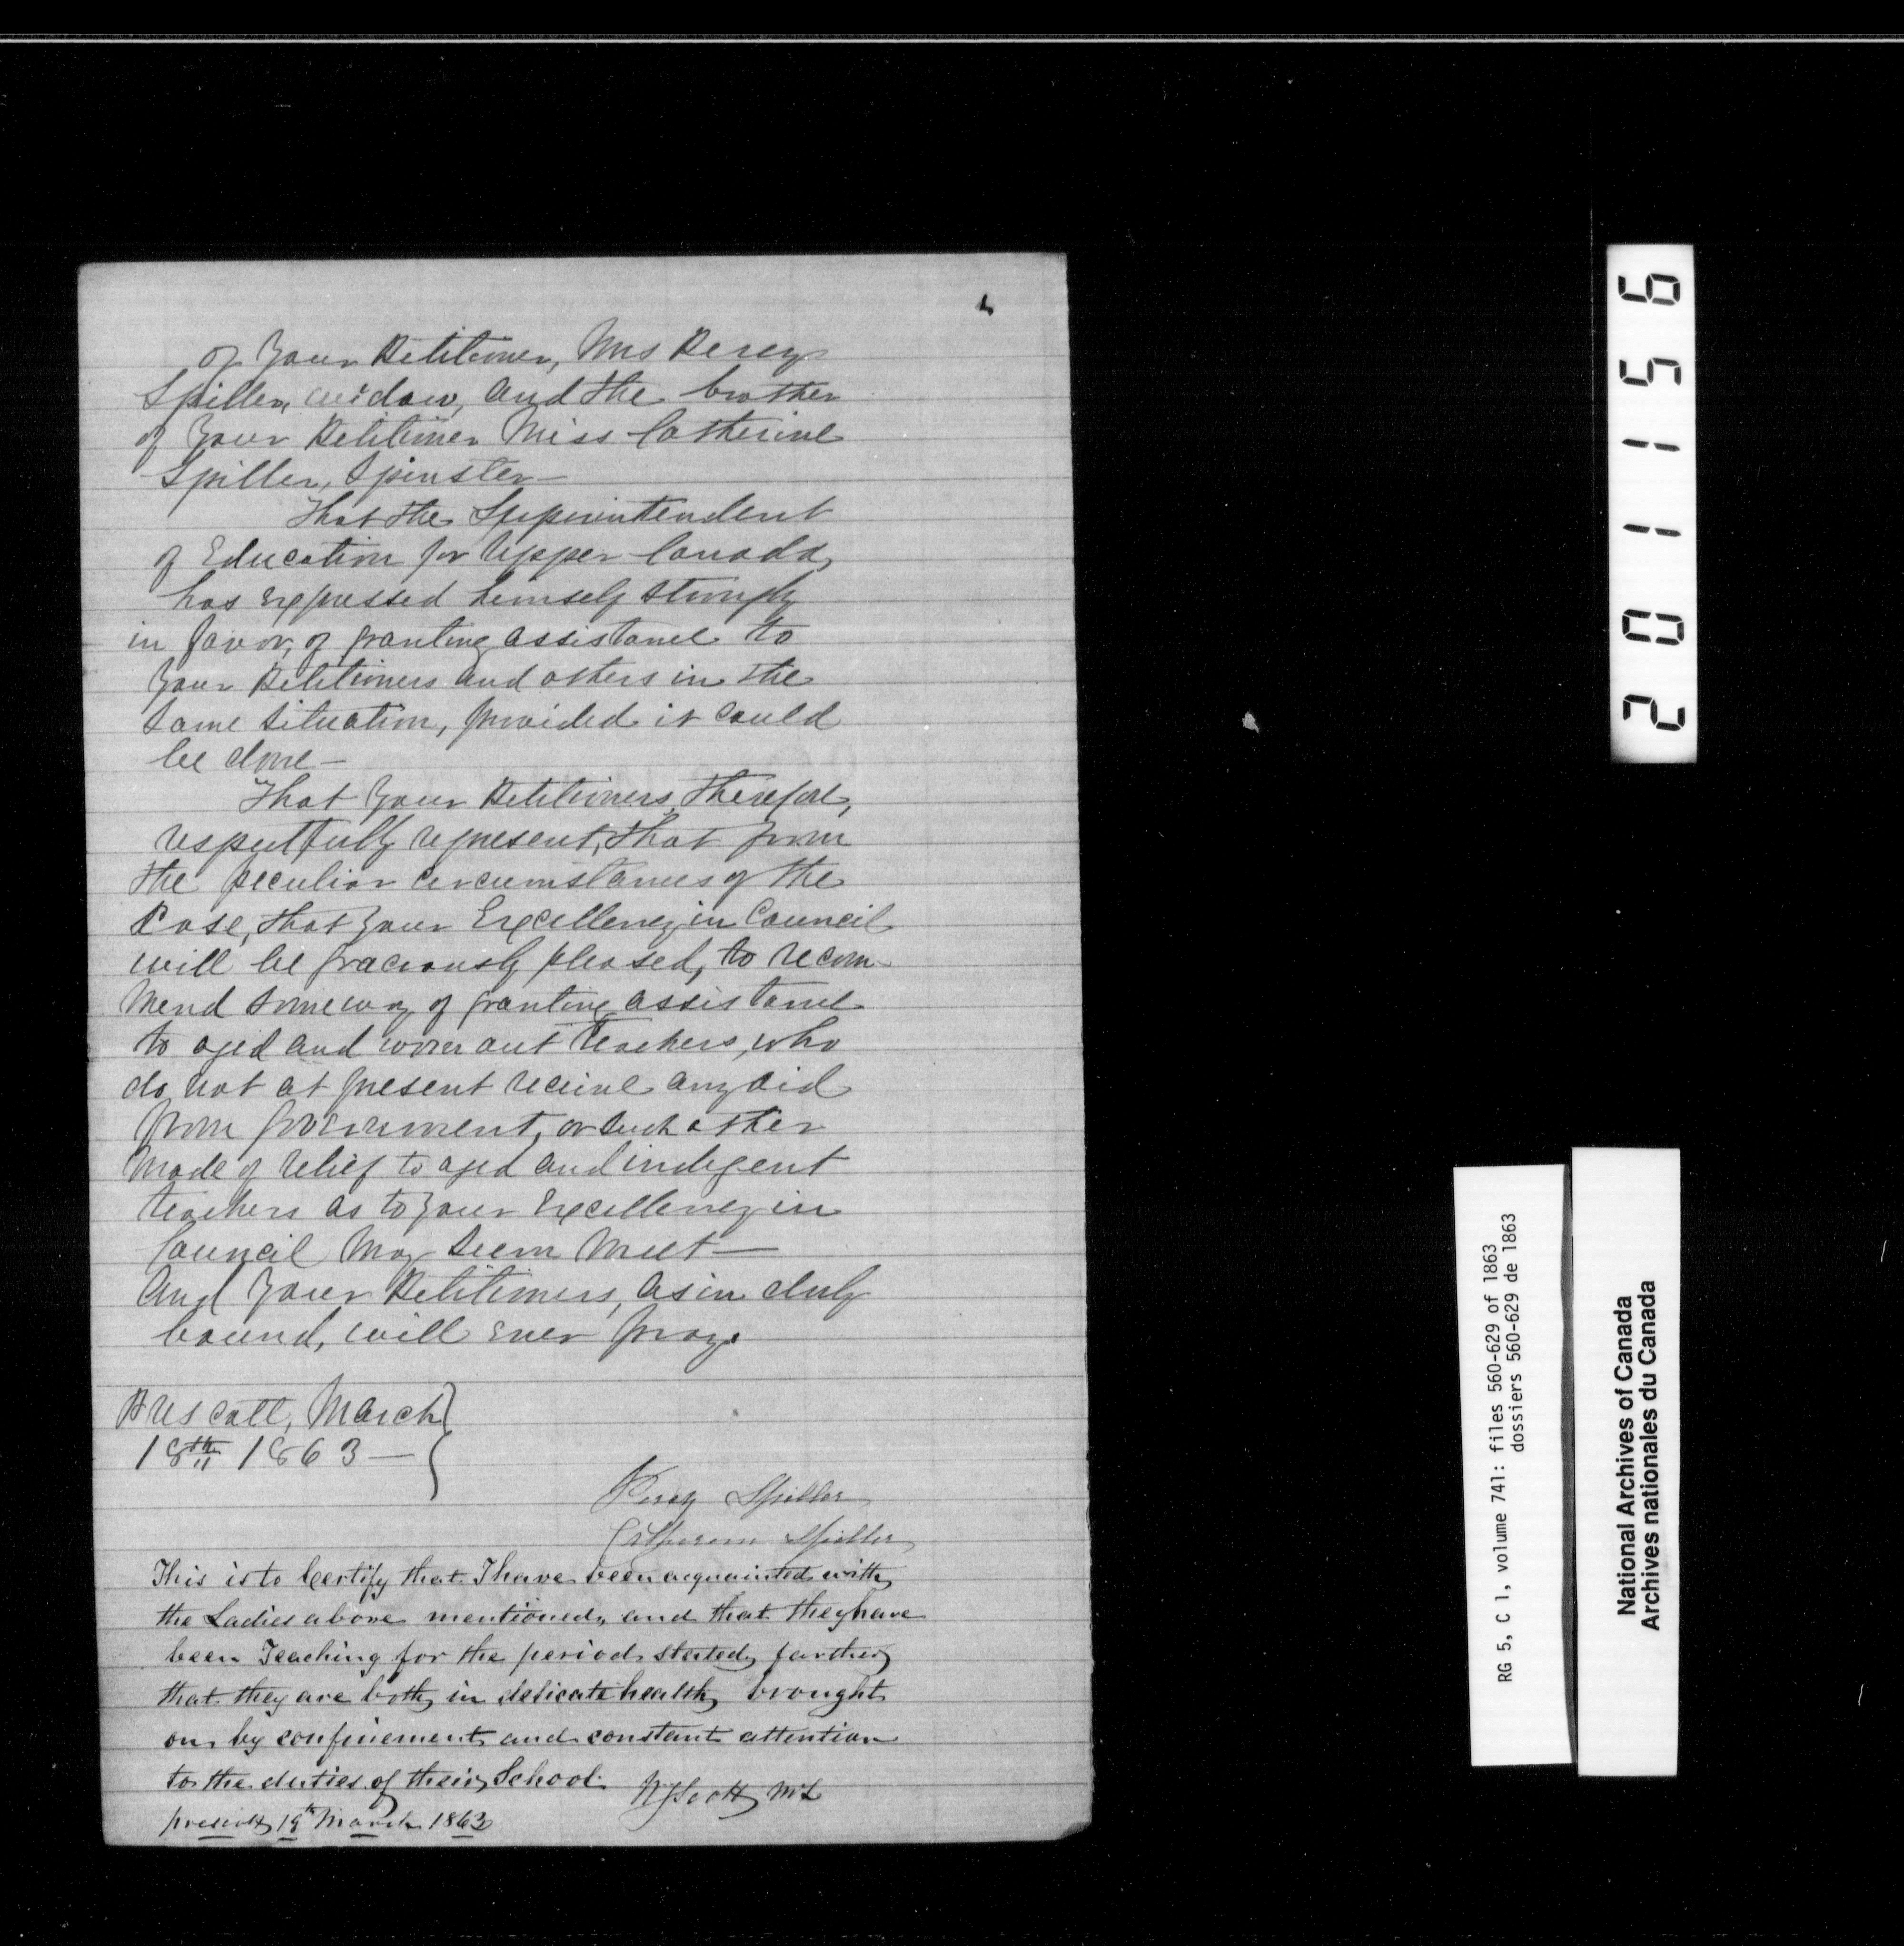 of Your Petitioner, Mrs Percy
Spiller, widow, and the brother
of Your Petitioner Miss Catherine
Spiller, Spinster—
That the Superintendent
of Education for Upper Canada,
has expressed himself strongly
in favor, of granting assistance to
Your Petitioners and others in the
same situation, provided it could
be done—
That Your Petitioners, therefore,
respectfully represent, that from
the peculiar circumstances of the
Case, that Your Excellency in Council
will be graciously pleased, to recom-
mend some way of granting assistance
to aged and worn out teachers, who
do not at present receive any aid
from Government, or such other
mode of relief to aged and indigent
teachers as to Your Excellency in
Council may seem meet—
And Your Petitioners, as in duty
bound, will ever pray.
Prescott, March
18th 1863—
Percy Spiller
Catherine Spiller
This is to Certify that I have been acquainted with
the Ladies above mentioned, and that they have
been Teaching for the period stated, further
that they are both in delicate health brought
on by confinement and constant attention
to the duties of their School.
Scott
Prescott 19th March 1863
201156
RG 5, C 1, volume 741: files 560-629 of 1863
dossiers 560-629 de 1863
National Archives of Canada
Archives nationales du Canada